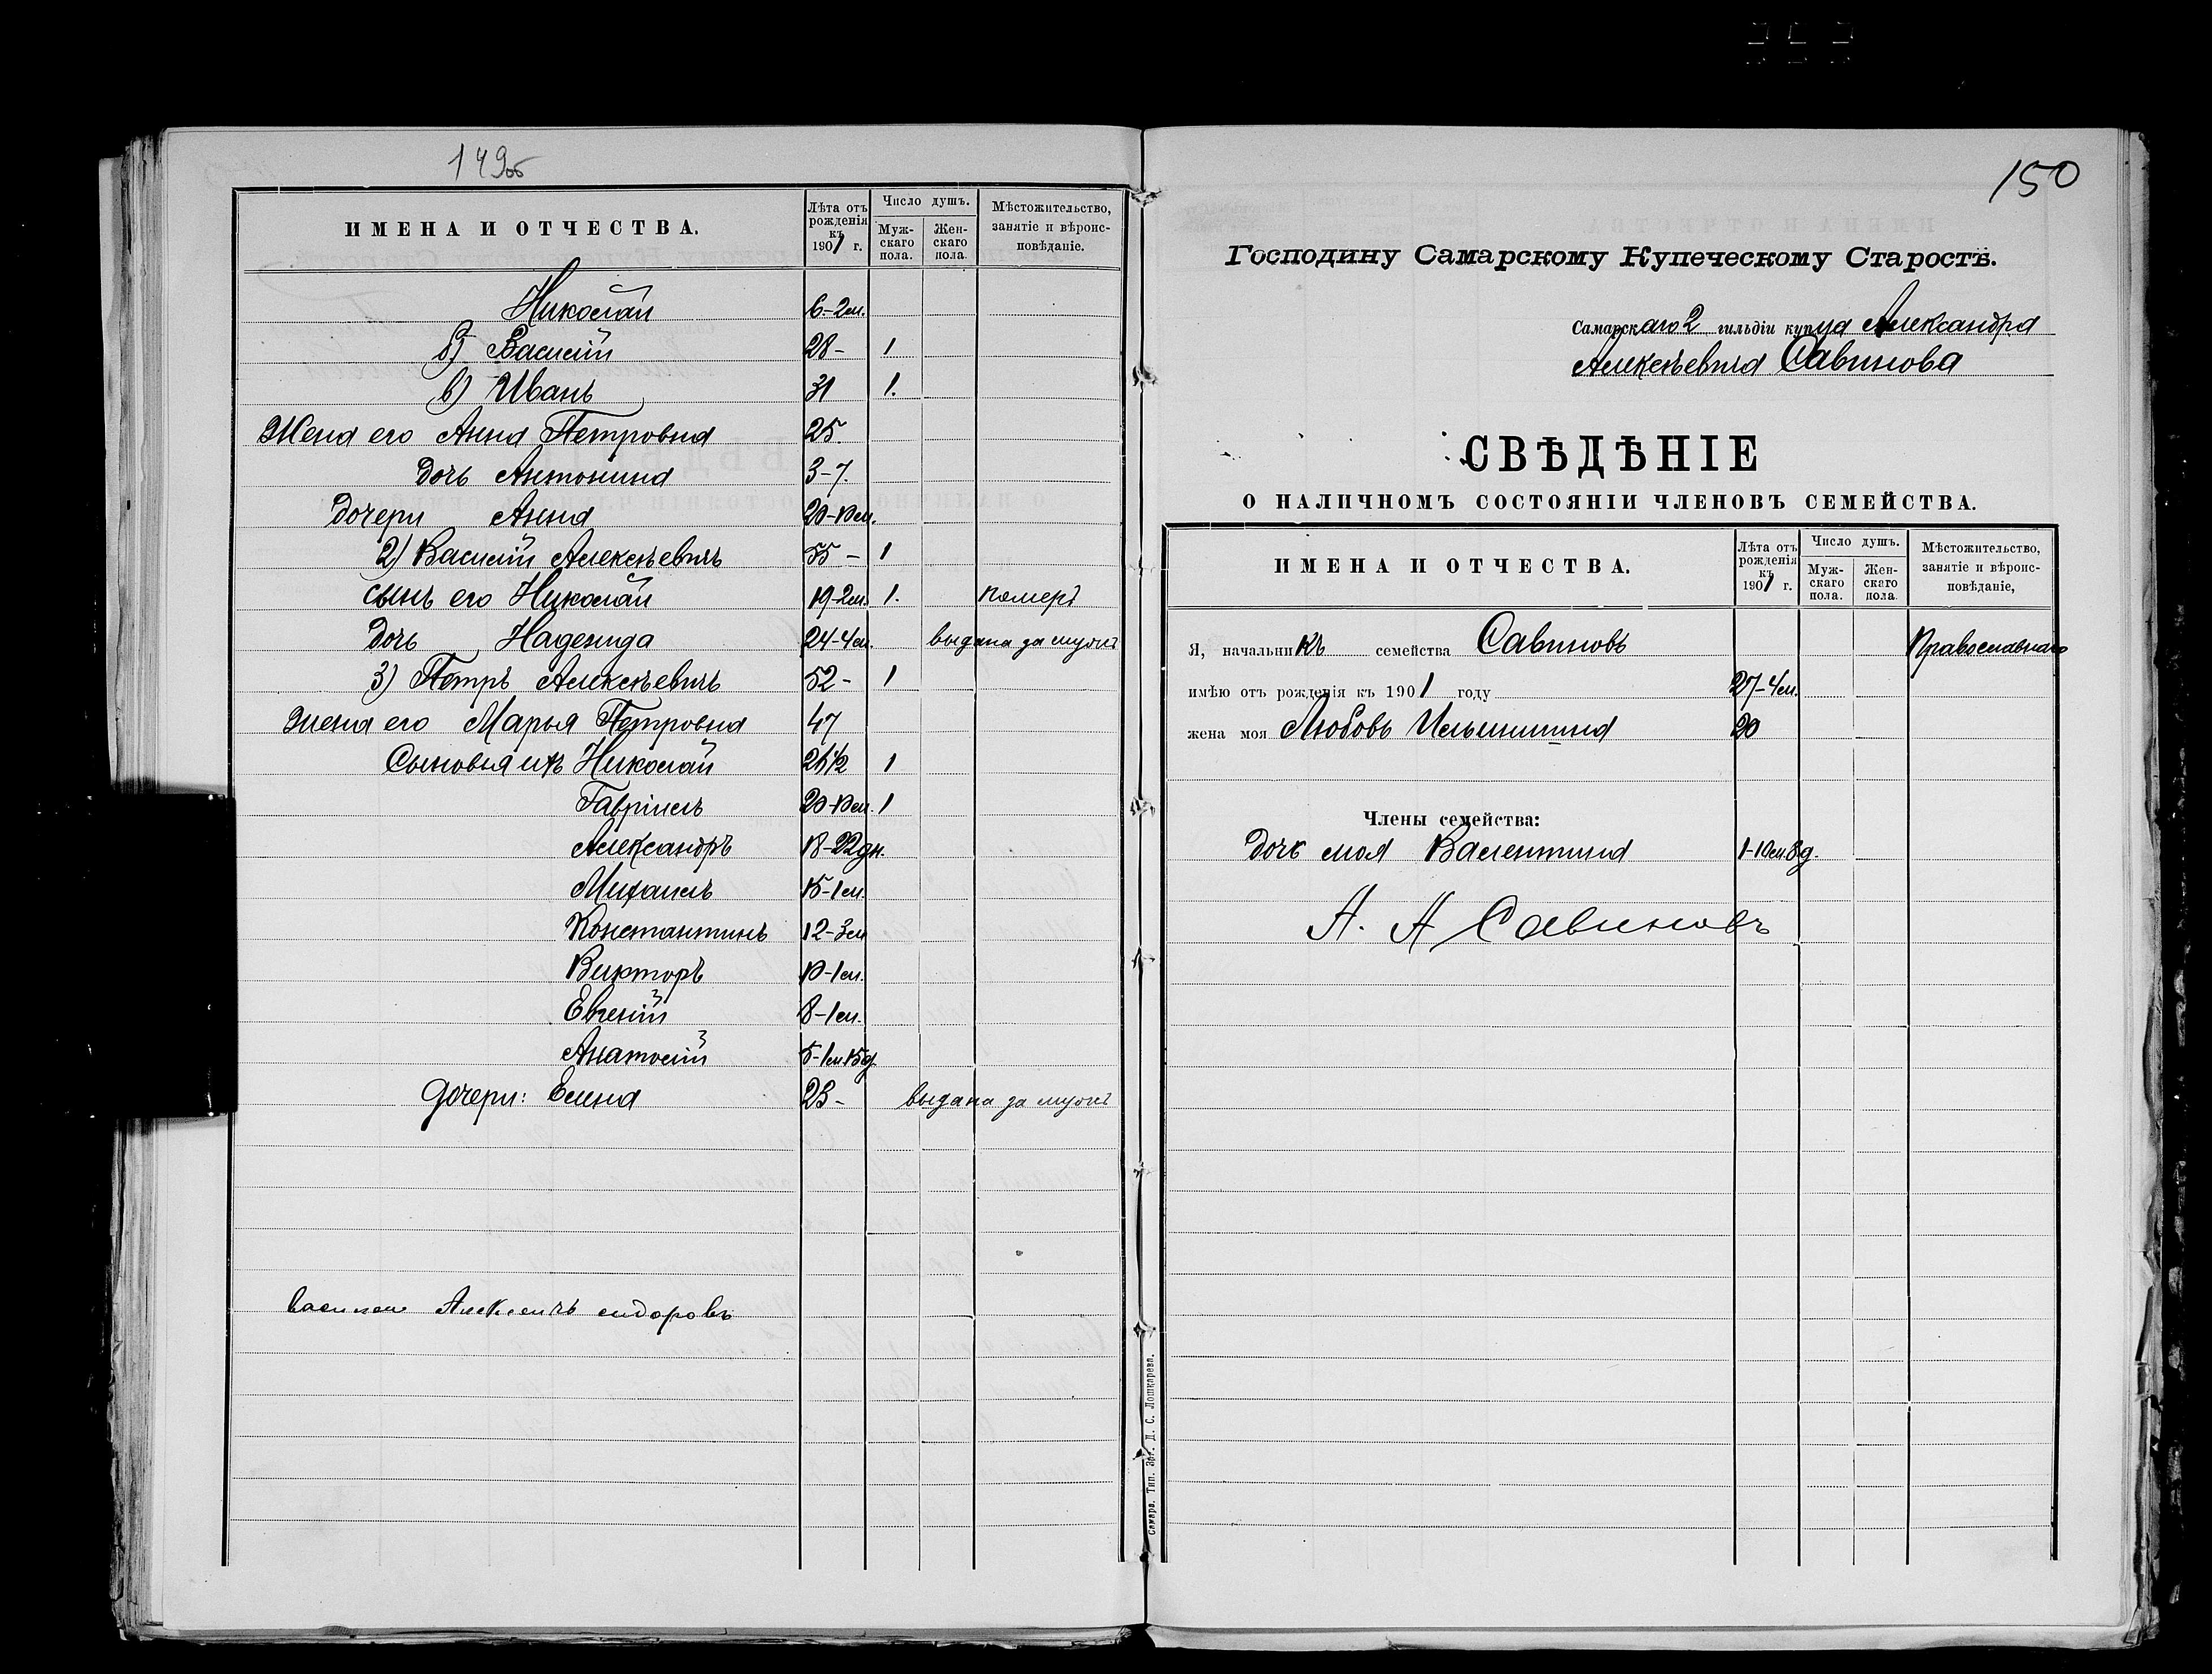 149об
ИМЕНА И ОТЧЕСТВА.
Лѣта отъ рожденія къ 1901 г.
Число душъ.
Мужскаго пола.
Женскаго пола.
Мѣстожительство, занятіе и вѣроисповѣданіе.
Николай 6-2м.
б) Василій 28- 1
в) Иванъ 31 1.
Жена его Анна Петровна 25.
Дочь Антонина 3-7.
Дочери Анна 20-10м.
2) Василій Алексѣевичъ 55- 1
сынъ его Николай 19-2м. 1. померъ
Дочь Надежда 24-4м. выдана за мужъ
3) Петръ Алексѣевичъ 52- 1
жена его Марья Петровна 47
Сыновья ихъ Николай 21½ 1
Гавріилъ 20-10м. 1
Александръ 18-22дн.
Михаилъ 15-1м.
Константинъ 12-3м
Викторъ 10-1м.
Евгеній 8-1м.
Анатолій 5-1м.15д.
дочери: Елена 23- выдана за мужъ
Алексеичъ сидоровъ
150
Господину Самарскому Купеческому Старостѣ.
Самарскаго 2 гильдіи купца Александра
Алексѣевича Савинова
СВѢДѢНІЕ
О НАЛИЧНОМЪ СОСТОЯНІИ ЧЛЕНОВЪ СЕМЕЙСТВА.
ИМЕНА И ОТЧЕСТВА.
Лѣта отъ рожденія къ 1901 г.
Число душъ.
Мужскаго пола.
Женскаго пола.
Мѣстожительство, занятіе и вѣроисповѣданіе,
Я, начальникъ семейства Савиновъ Православнаго
имѣю отъ рожденія къ 1901 году 27-4м.
жена моя Любовь Ильинишна 20
Члены семейства:
Дочь моя Валентина 1-10м.8д.
А. А Савиновъ
Самара. Тип. Д. С. Лошкарева.